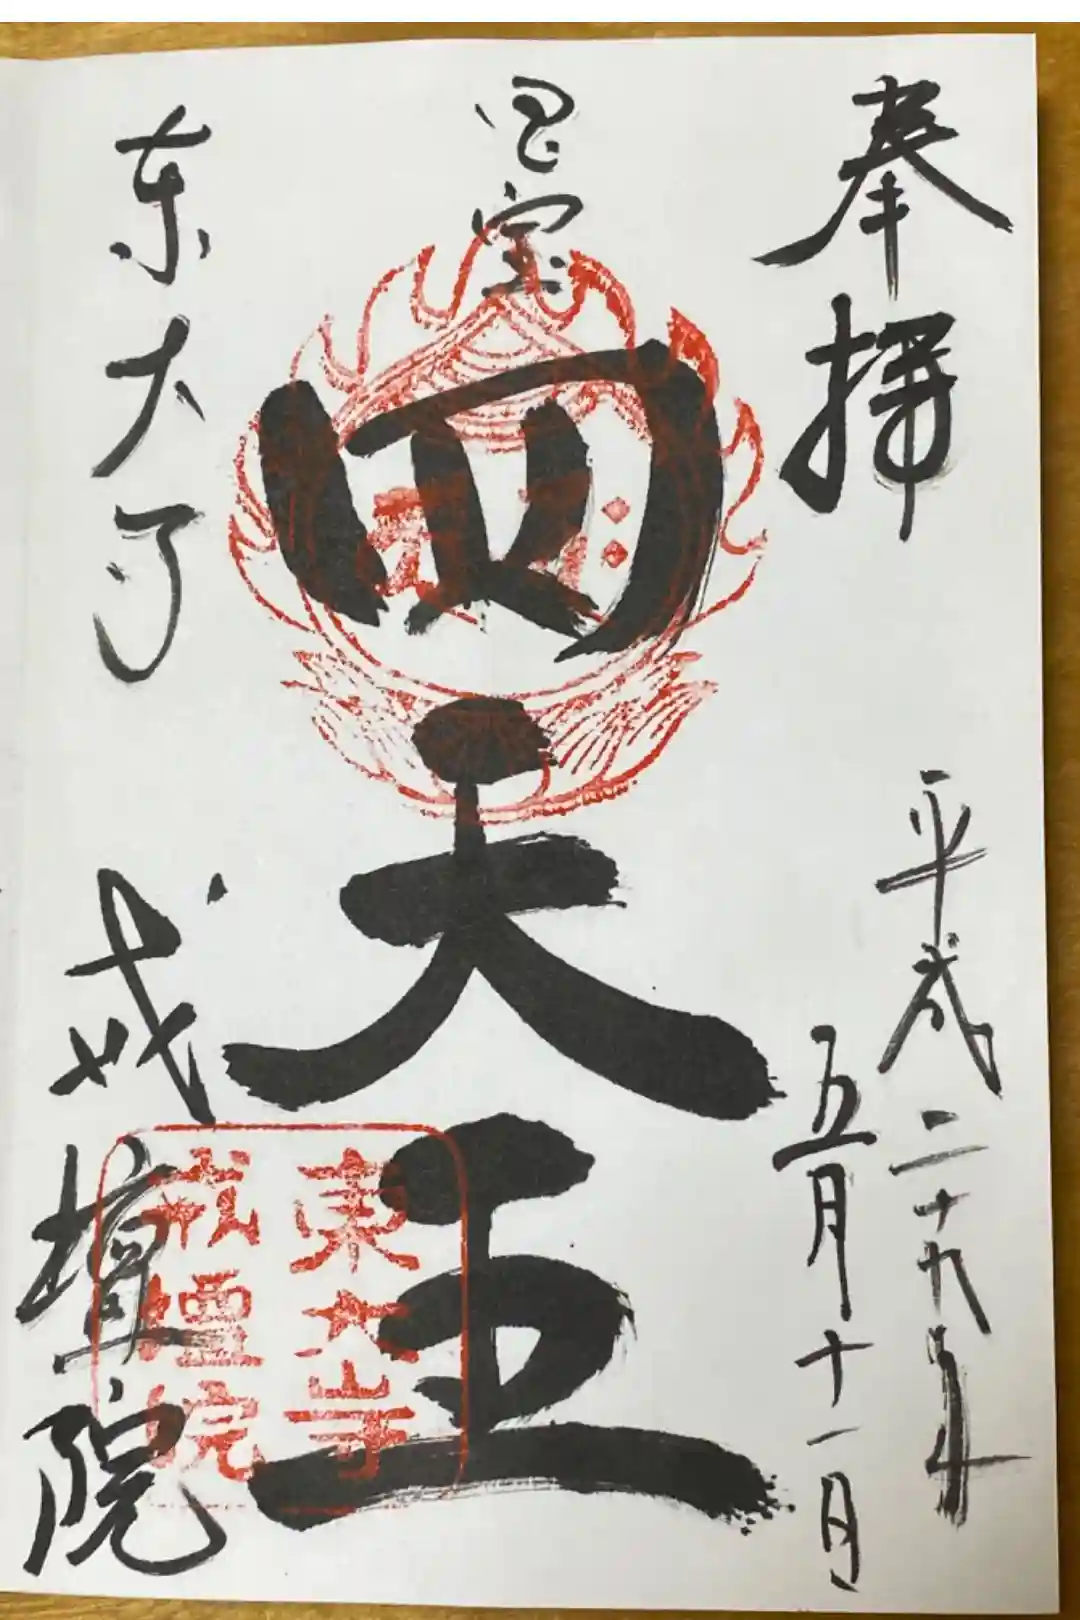 奉拝
平成二十九年
五月十一日
国宝
四天王
東大寺
戒壇院
東大寺
戒壇院